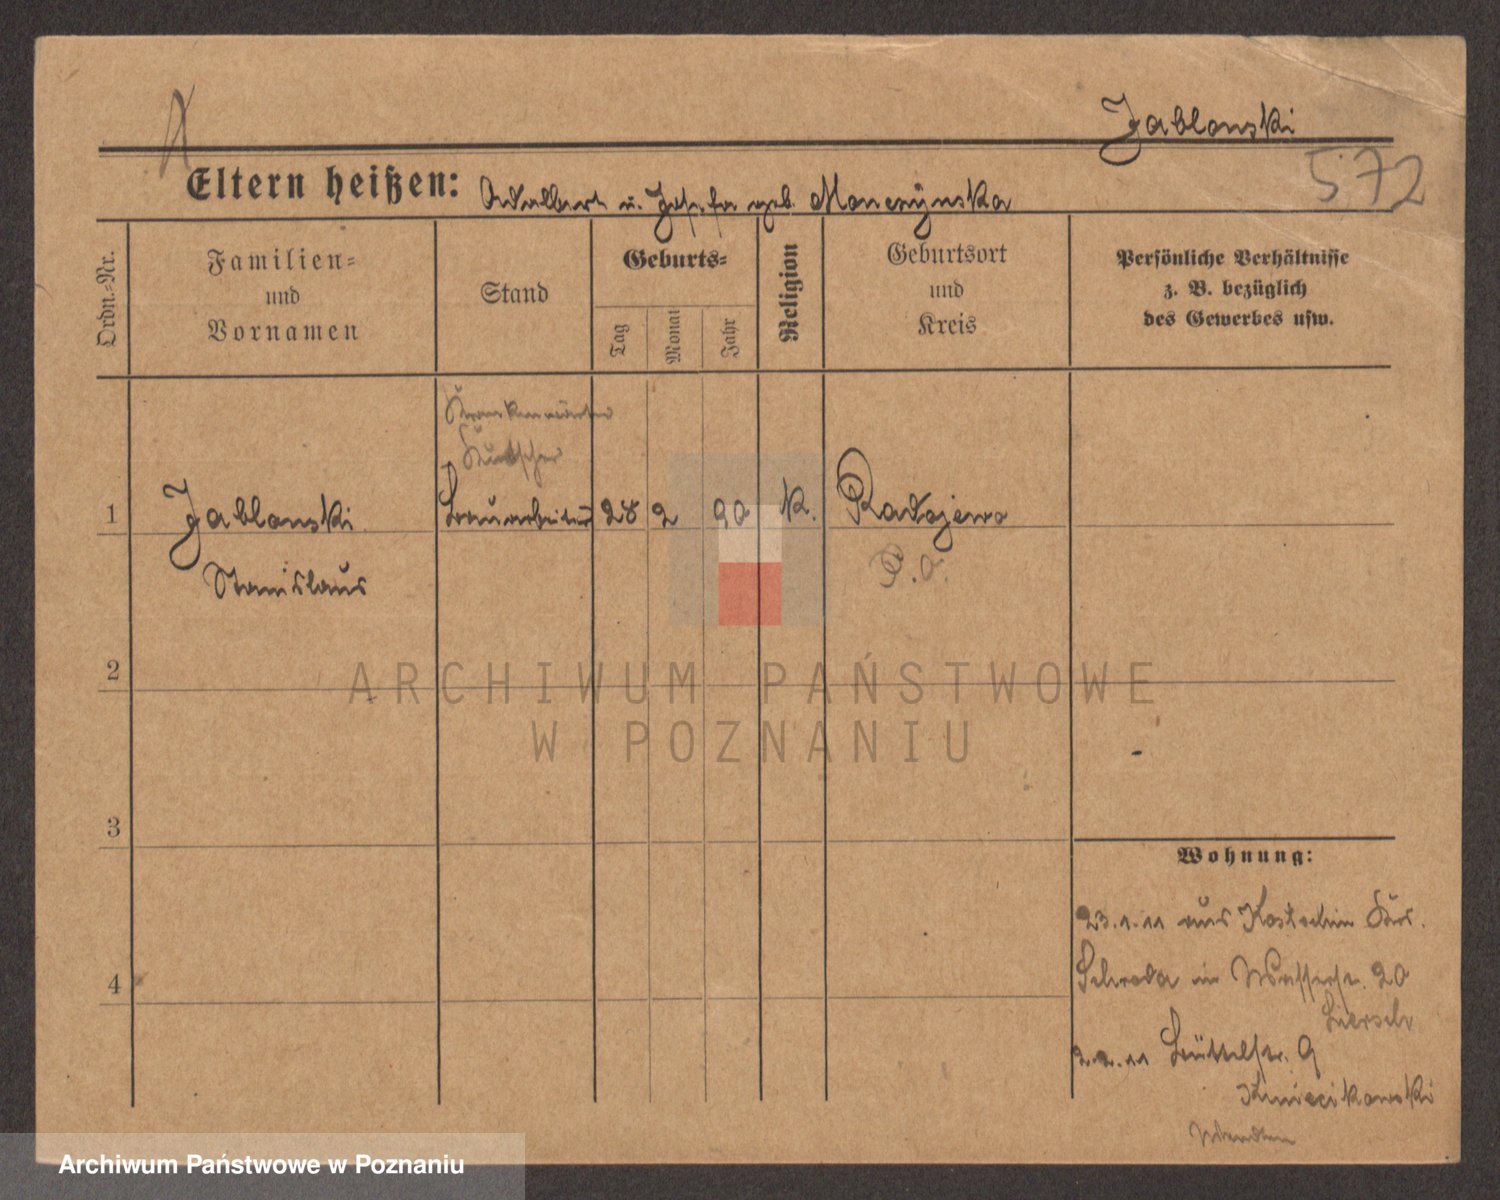 Jablonski
572
Eltern heißen: Adalbert u. Josefa geb.
Ordn.-Nr.
Familien-
und
Vornamen
Stand
Geburts-
Tag
Monat
Jahr
Religion
Geburtsort
und
Kreis
Persönliche Verhältnisse
z. B. bezüglich
des Gewerbes usw.
Krankenwärter
Kutscher
1 Jablonski 28 2 90 K. Radojewo
Stanislaus
P. O.
2
3
4
Wohnung:
23.1.11 aus Kostschin Krs.
Schroda in Wasserstr. 20
2.2.11 Büttelstr. 9
ARCHIWUM PAŃSTWOWE
W POZNANIU
Archiwum Państwowe w Poznaniu